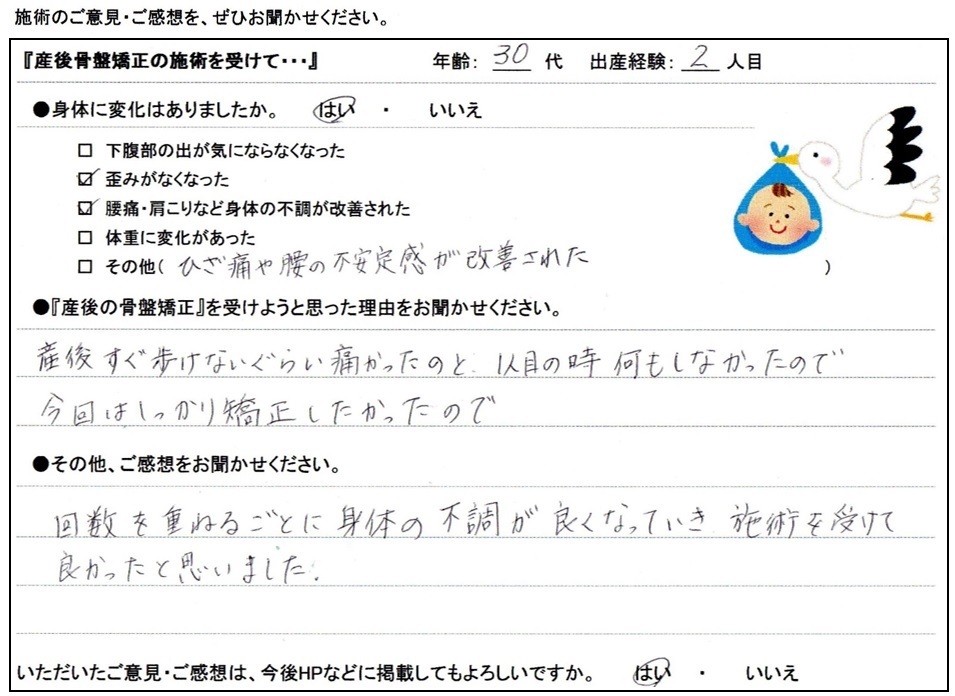 施術のご意見・ご感想を、ぜひお聞かせください。
『産後骨盤矯正の施術を受けて・・・』 年齢： 30 代 出産経験： 2 人目
●身体に変化はありましたか。 はい ・ いいえ
□ 下腹部の出が気にならなくなった
☑ 歪みがなくなった
☑ 腰痛・肩こりなど身体の不調が改善された
□ 体重に変化があった
□ その他( ひざ痛や腰の不安定感が改善された )
●『産後の骨盤矯正』を受けようと思った理由をお聞かせください。
産後すぐ歩けないぐらい痛かったのと、1人目の時何もしなかったので
今回はしっかり矯正したかったので
●その他、ご感想をお聞かせください。
回数を重ねるごとに身体の不調が良くなっていき 施術を受けて
良かったと思いました。
いただいたご意見・ご感想は、今後HPなどに掲載してもよろしいですか。 はい ・ いいえ